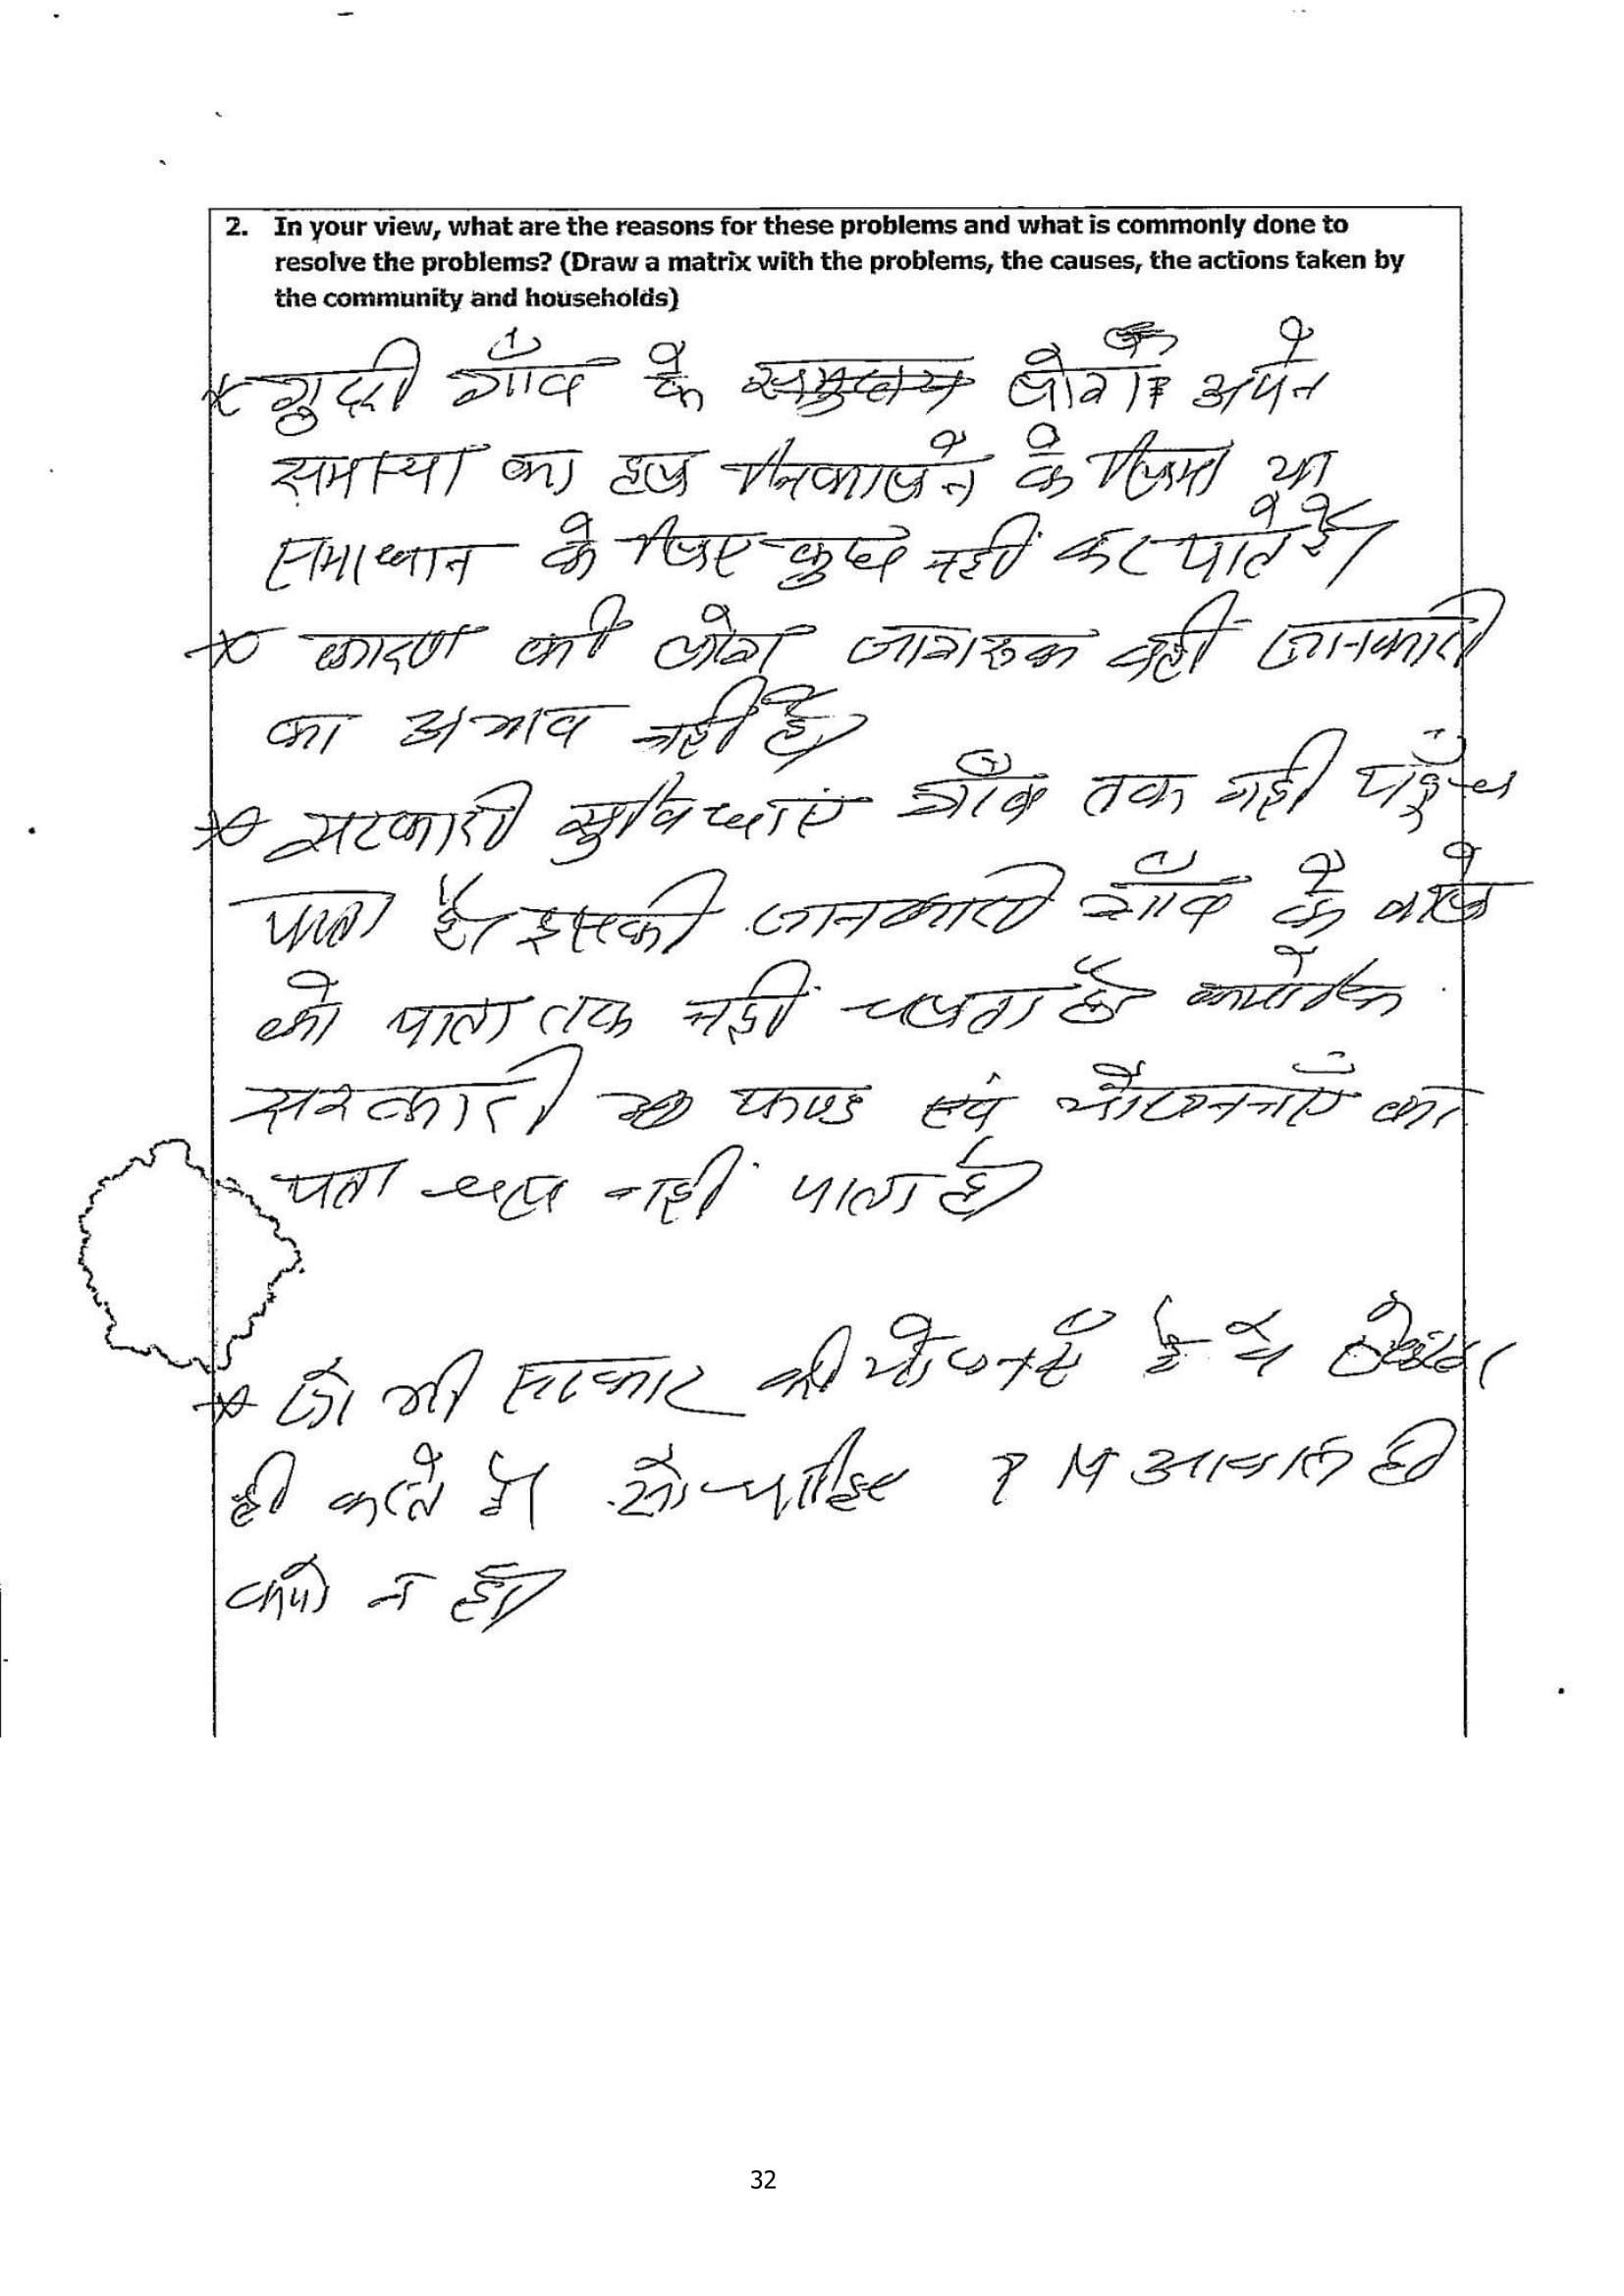 2. In your view, what are the reasons for these problems and what is commonly done to
resolve the problems? (Draw a matrix with the problems, the causes, the actions taken by
the community and households)
* गाँव के लोगों अपने
समास्या का हल निकालने के लिए या
समाधान के लिए कुछ नहीं कर पाते है।
* कारण की लोग जागरूक नहीं जानकारी
का अभाव नहीं है।
* सरकारी सुविधाएं गाँव तक नहीं पहुँच
पाता है। इसकी जानकारी गाँव के
को पाता तक नहीं चलता है क्योंकि
सरकारी फण्ड एवं योजननाएँ का
पता चल नहीं पाता है।
* जो भी सरकार की योजनाएँ है ये ठेकेदार
ही करते है। सो चाहिए PM आवास ही
क्यों न हो।
32